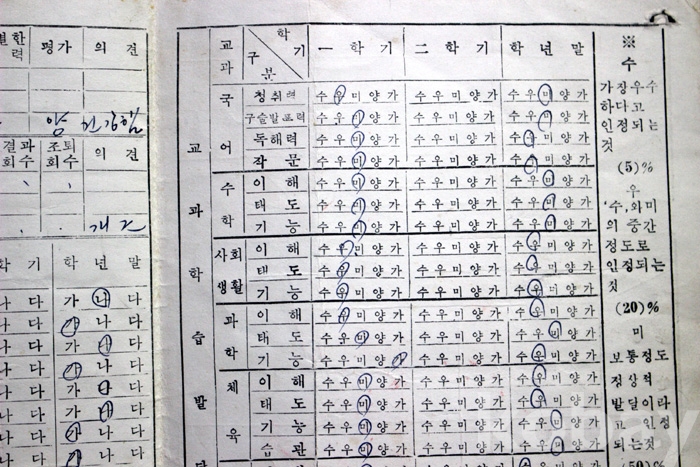 결한 평가 의견
력
양 건강함
결과 조퇴 의견
회수 회수
개근
학기 학년말
나 다 가 나 다
나 다 가 나 다
나 다 가 나 다
나 다 가 나 다
나 다 가 나 다
나 다 가 나 다
나 다 가 나 다
나 다 가 나 다
교과 학기 구분 一학기 二학기 학년말
교과학습발
국어 청취력 수우미양가 수우미양가 수우미양가
구술발표력 수우미양가 수우미양가 수우미양가
독해력 수우미양가 수우미양가 수우미양가
작문 수우미양가 수우미양가 수우미양가
수학 이해 수우미양가 수우미양가 수우미양가
태도 수우미양가 수우미양가 수우미양가
기능 수우미양가 수우미양가 수우미양가
사회생활 이해 수우미양가 수우미양가 수우미양가
태도 수우미양가 수우미양가 수우미양가
기능 수우미양가 수우미양가 수우미양가
과학 이해 수우미양가 수우미양가 수우미양가
태도 수우미양가 수우미양가 수우미양가
기능 수우미양가 수우미양가 수우미양가
체육 이해 수우미양가 수우미양가 수우미양가
태도 수우미양가 수우미양가 수우미양가
기능 수우미양가 수우미양가 수우미양가
습관 수우미양가 수우미양가 수우미양가
※
수
가장우수
하다고
인정되는
것
(5)%
우
'수,와미
의 중간
정도로
인정되는
것
(20)%
미
보통정도
정상적
발달이라
고 인정
되는것
(50)%